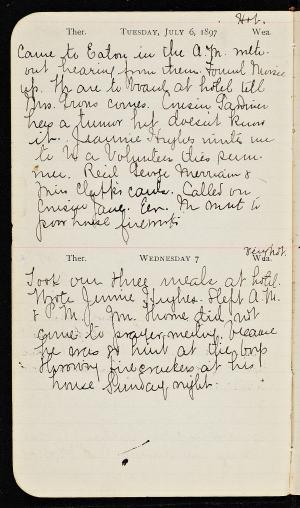 Hot.
Ther. TUESDAY, JULY 6, 1897 Wea.
Came to Eaton in the A.M. with-
out hearing from them. Found
up. We are to board at hotel till
Mrs. comes. Cousin
has a tumor but doesn't know
it. Jeannie Hughes writes me
to be a Volunteer this sum-
mer. Recd George Merriam &
Miss Clapp's cards. Called on
Cousin Jane. Eve. M went to
poor house fireworks
very hot.
Ther. WEDNESDAY 7 Wea.
Took our three meals at hotel.
Wrote Jennie Hughes. Slept A.M.
& P.M. Mr. Thorne did not
come to prayer meeting because
he was so hurt at the boys
throwing firecrackers at his
house Sunday night.